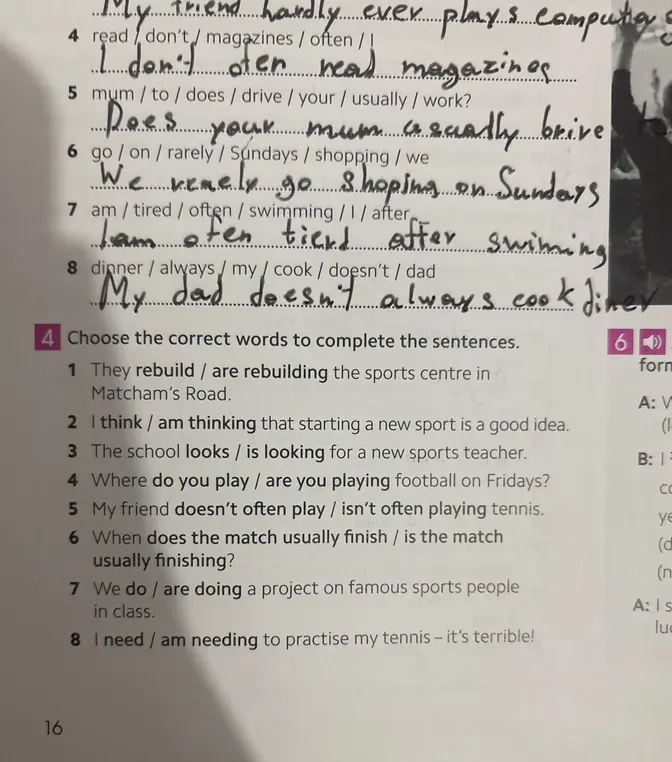 My friend hardly ever plays compu
4 read / don't / magazines / often / I
I don't ofen read magazines
5 mum / to / does / drive / your / usually / work?
Does your mum usuadly brive to
6 go / on / rarely / Sundays / shopping / we
We rerely go shoping on Sundays
7 am / tired / often / swimming / I / after
I am ofen tierd after swiming
8 dinner / always / my / cook / doesn't / dad
My dad doesn't always cook diner
4 Choose the correct words to complete the sentences.
1 They rebuild / are rebuilding the sports centre in
Matcham's Road.
2 I think / am thinking that starting a new sport is a good idea.
3 The school looks / is looking for a new sports teacher.
4 Where do you play / are you playing football on Fridays?
5 My friend doesn't often play / isn't often playing tennis.
6 When does the match usually finish / is the match
usually finishing?
7 We do / are doing a project on famous sports people
in class.
8 I need / am needing to practise my tennis – it's terrible!
16
6
form
A:
B: I
A: I s